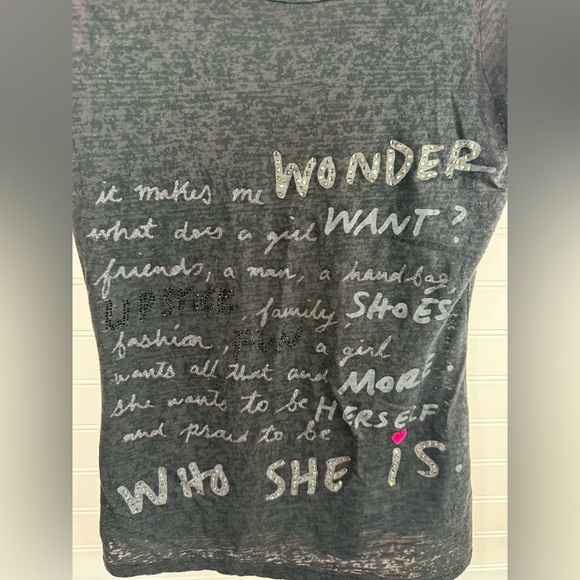 it makes me WONDER
what does a girl WANT?
friends, a man, a handbag,
LIPSTICK, family, SHOES
fashion, FUN a girl
wants all that and MORE.
she wants to be HERSELF
and proud to be
WHO SHE iS.